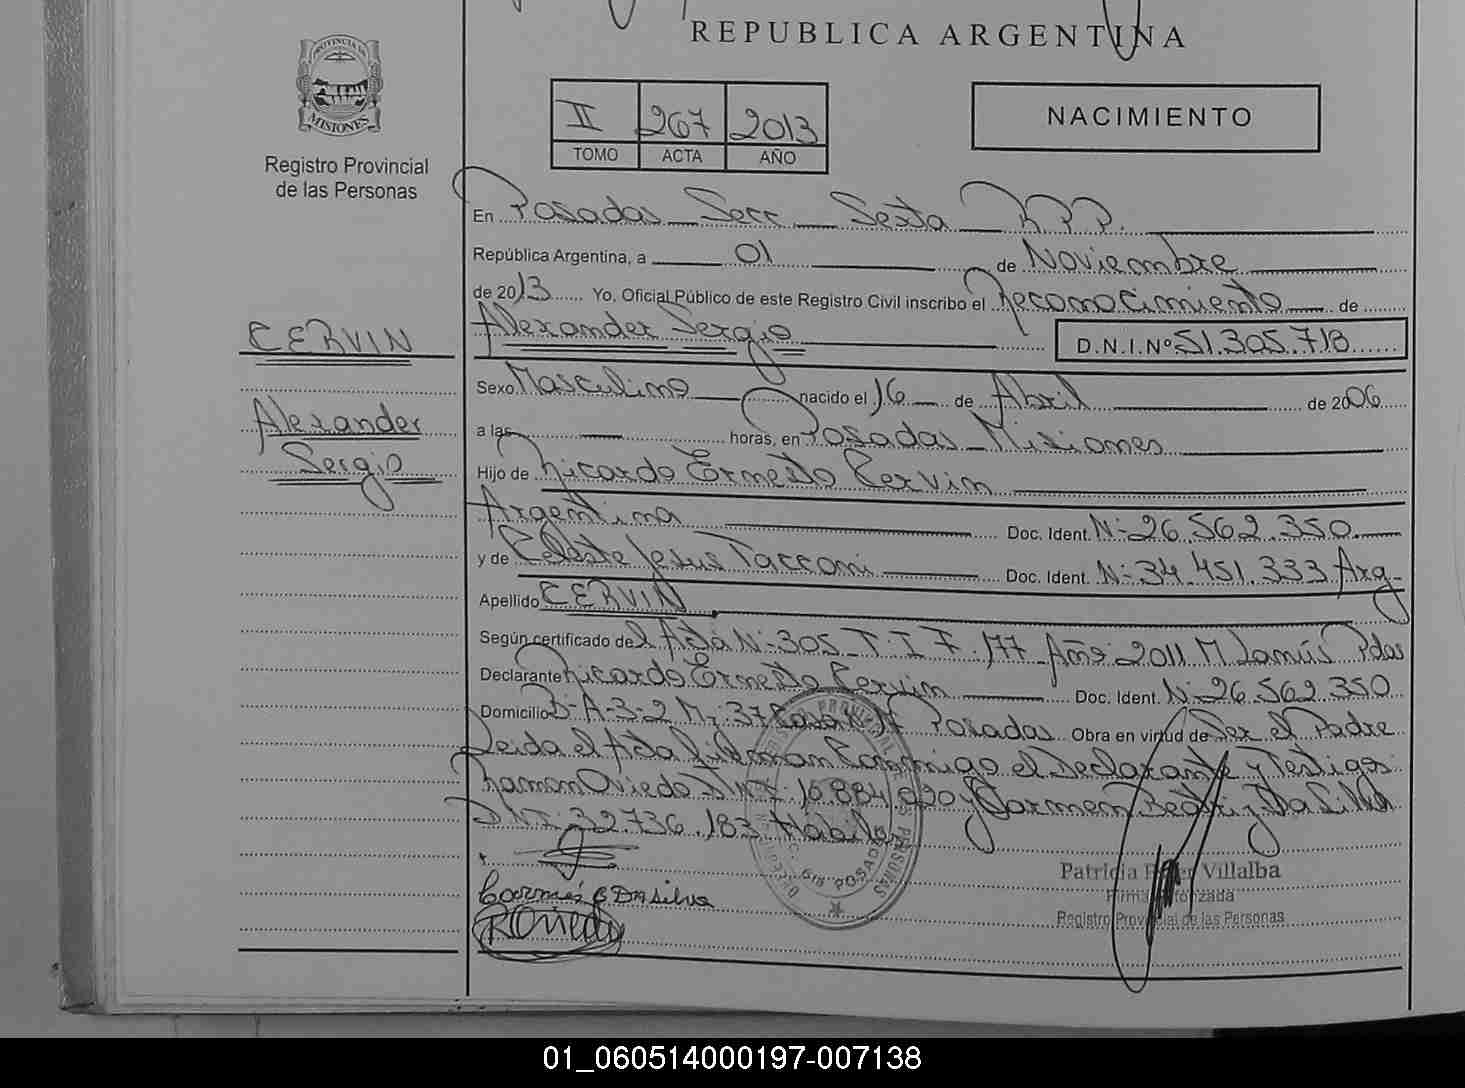 REPUBLICA ARGENTINA
PROVINCIA DE
MISIONES
Registro Provincial
de las Personas
II 267 2013
TOMO ACTA AÑO
NACIMIENTO
En Posadas Secc Sexta R.P.P.
República Argentina, a 01 de Noviembre
de 2013 Yo, Oficial Público de este Registro Civil inscribo el Reconocimiento de
CERVIN
Alexander Sergio D.N.I. Nº 51.305.718
Sexo Masculino nacido el 16 de Abril de 2006
Alexander
a las horas, en Posadas Misiones
Sergio
Hijo de Ricardo Ernesto Cervin
Argentina Doc. Ident. Nº 26.562.350
y de Celeste Jesus Tacconi Doc. Ident. Nº 34.451.333 Arg
Apellido CERVIN
Según certificado del Acta Nº 305 T. I F. 177 Año: 2011 M Lanús Pdas
Declarante Ricardo Ernesto Cervin Doc. Ident. Nº 26.562.350
Domicilio Bº A-3-2 Mz 37 Casa Nº Posadas Obra en virtud de Ser el Padre
Leida el Acta Firman Conmigo el Declarante y Testigos
Ramon Oviedo DNI: 16.884.020 y Carmen Beatriz Da Silva
DNI: 32.736.183 Hábiles
Patricia Villalba
Firma Autorizada
Registro Provincial de las Personas
Carmen B Da Silva
R Oviedo
01_060514000197-007138